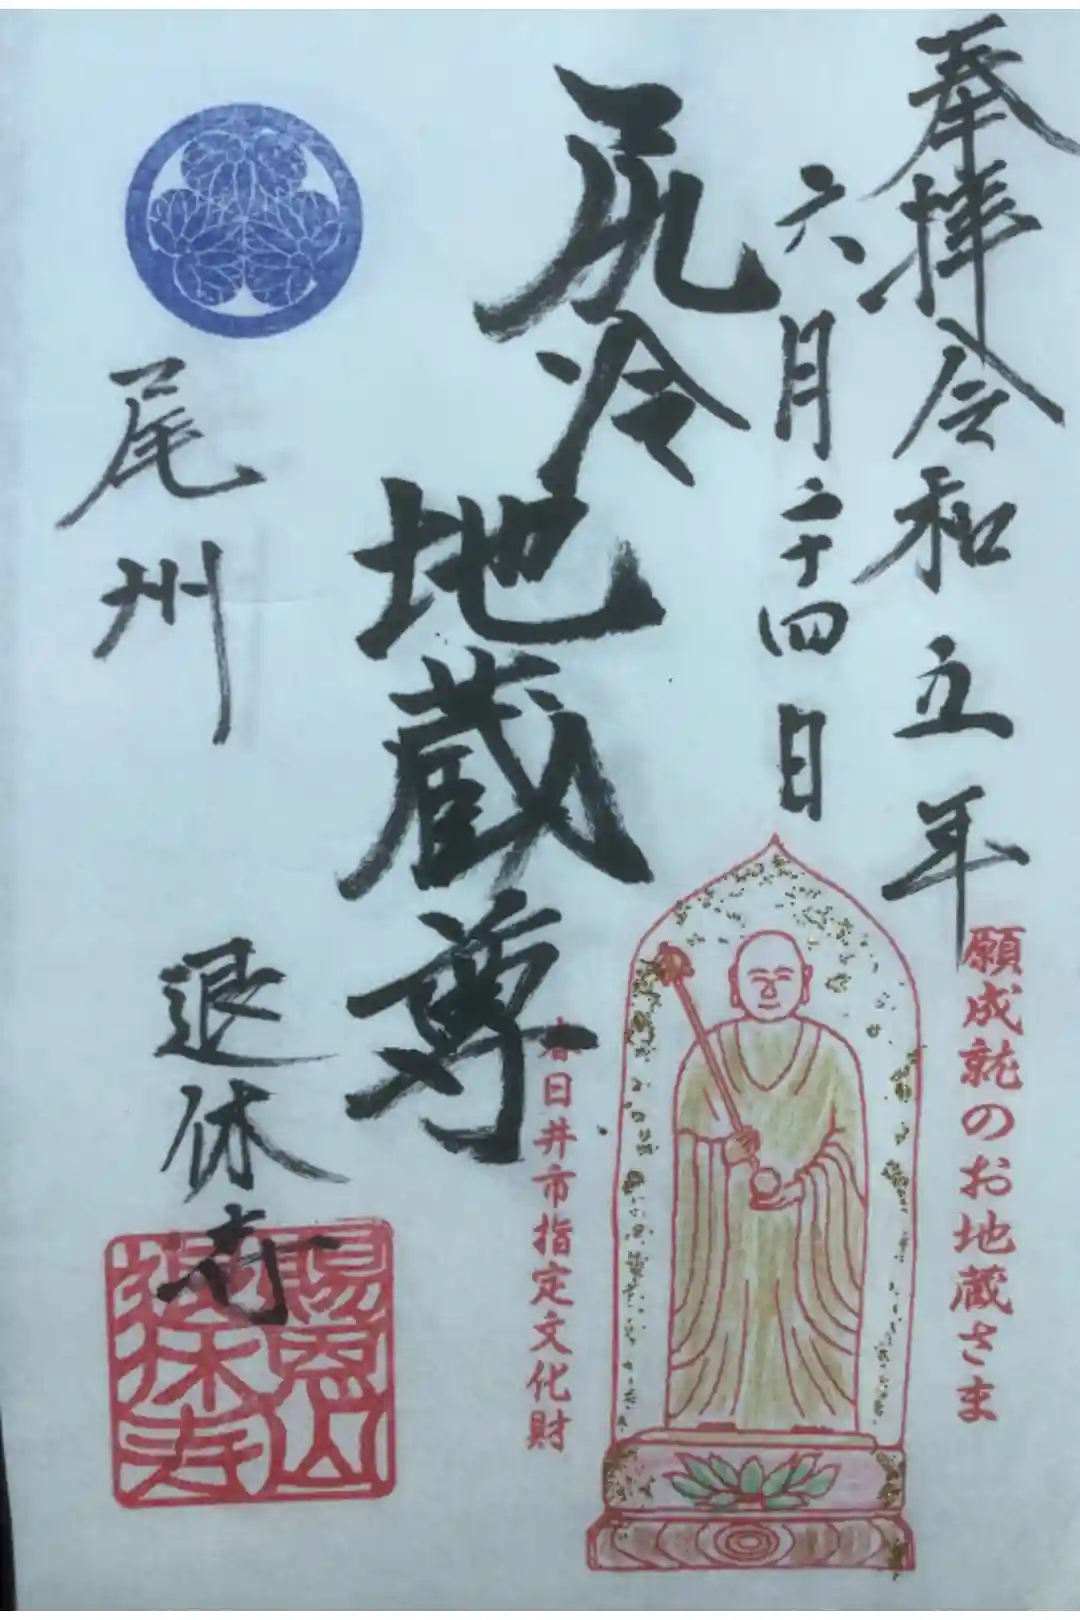 奉拝令和五年
六月二十四日
尻冷地蔵尊
尾州
退休寺
願成就のお地蔵さま
春日井市指定文化財
賜恩山
退休寺